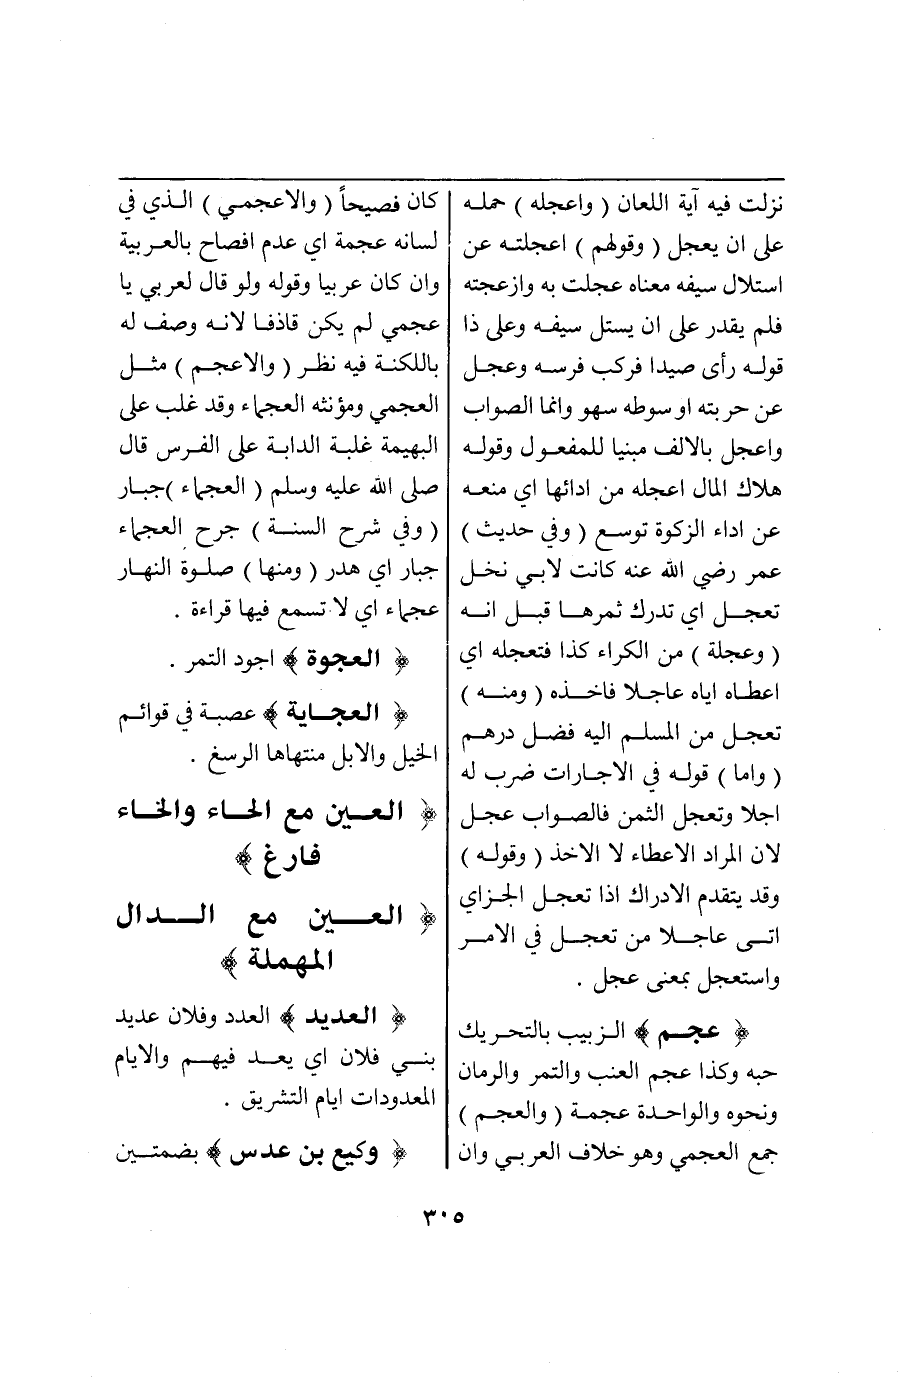 نزلت فيه آية اللعان ( واعجله ) حمله
على ان يعجل ( وقولهم ) اعجلته عن
استلال سيفه معناه عجلت به وازعجته
فلم يقدر على ان يستل سيفه وعلى ذا
قوله رأى صيدا فركب فرسه وعجل
عن حربته او سوطه سهو وانما الصواب
واعجل بالالف مبنيا للمفعول وقوله
هلاك المال اعجله من ادائها اي منعه
عن اداء الزكوة توسع ( وفي حديث )
عمر رضي الله عنه كانت لابي نخل
تعجل اي تدرك ثمرها قبل انه
( وعجلة ) من الكراء كذا فتعجله اي
اعطاه اياه عاجلا فاخذه ( ومنه )
تعجل من المسلم اليه فضل درهم
( واما ) قوله في الاجارات ضرب له
اجلا وتعجل الثمن فالصواب عجل
لان المراد الاعطاء لا الاخذ ( وقوله )
وقد يتقدم الادراك اذا تعجل الجزاي
اتى عاجلا من تعجل في الامر
واستعجل بمعنى عجل .
﴿ عجم ﴾ الزبيب بالتحريك
حبه وكذا عجم العنب والتمر والرمان
ونحوه والواحدة عجمة ( والعجم )
جمع العجمي وهو خلاف العربي وان
كان فصيحاً ( والاعجمي ) الذي في
لسانه عجمة اي عدم افصاح بالعربية
وان كان عربيا وقوله ولو قال لعربي يا
عجمي لم يكن قاذفا لانه وصف له
باللكنة فيه نظر ( والاعجم ) مثل
العجمي ومؤنثه العجماء وقد غلب على
البهيمة غلبة الدابة على الفرس قال
صلى الله عليه وسلم ( العجماء ) جبار
( وفي شرح السنة ) جرح العجماء
جبار اي هدر ( ومنها ) صلوة النهار
عجماء اي لا تسمع فيها قراءة .
﴿ العجوة ﴾ اجود التمر .
﴿ العجاية ﴾ عصبة في قوائم
الخيل والابل منتهاها الرسغ .
﴿ العين مع الحاء والخاء
فارغ ﴾
﴿ العين مع الدال
المهملة ﴾
﴿ العديد ﴾ العدد وفلان عديد
بني فلان اي يعد فيهم والايام
المعدودات ايام التشريق .
﴿ وكيع بن عدس ﴾ بضمتين
٣٠٥